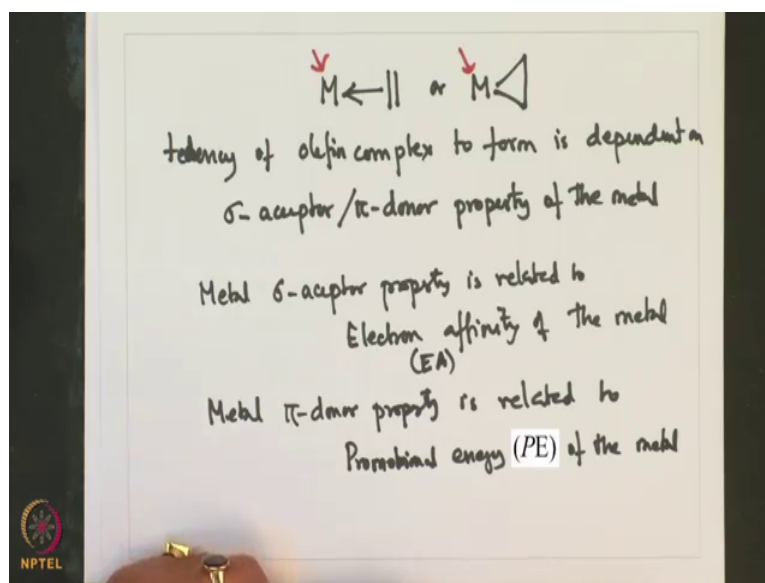 M ← || or M
tedency of olefin complex to form is dependent on
σ-acceptor/π-donor property of the metal
Metal σ-acceptor property is related to
Electron affinity of the metal
(EA)
Metal π-donor property is related to
Promotional energy (PE) of the metal
NPTEL